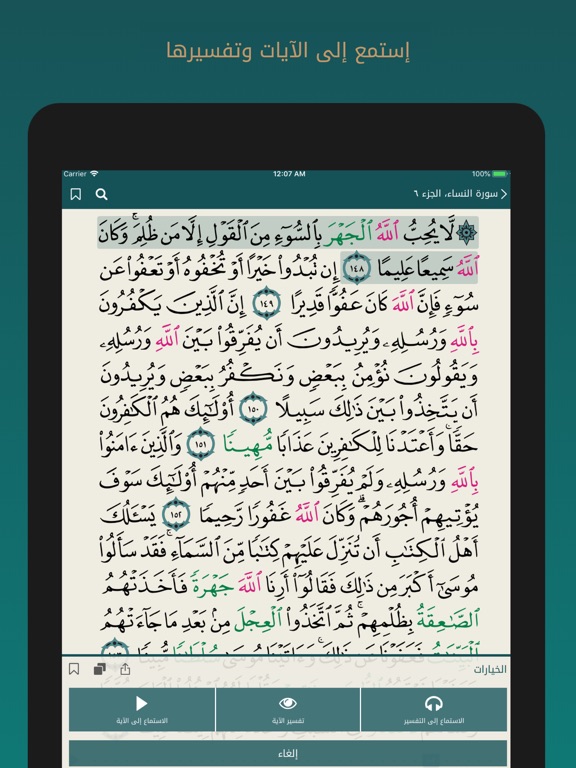 إستمع إلى الآيات وتفسيرها
Carrier 12:07 AM 100%
سورة النساء، الجزء ٦
۞ لَّا يُحِبُّ ٱللَّهُ ٱلْجَهْرَ بِٱلسُّوٓءِ مِنَ ٱلْقَوْلِ إِلَّا مَن ظُلِمَ ۚ وَكَانَ
ٱللَّهُ سَمِيعًا عَلِيمًا ١٤٨ إِن تُبْدُوا۟ خَيْرًا أَوْ تُخْفُوهُ أَوْ تَعْفُوا۟ عَن
سُوٓءٍ فَإِنَّ ٱللَّهَ كَانَ عَفُوًّا قَدِيرًا ١٤٩ إِنَّ ٱلَّذِينَ يَكْفُرُونَ
بِٱللَّهِ وَرُسُلِهِۦ وَيُرِيدُونَ أَن يُفَرِّقُوا۟ بَيْنَ ٱللَّهِ وَرُسُلِهِۦ
وَيَقُولُونَ نُؤْمِنُ بِبَعْضٍ وَنَكْفُرُ بِبَعْضٍ وَيُرِيدُونَ
أَن يَتَّخِذُوا۟ بَيْنَ ذَٰلِكَ سَبِيلًا ١٥٠ أُو۟لَٰٓئِكَ هُمُ ٱلْكَٰفِرُونَ
حَقًّا ۚ وَأَعْتَدْنَا لِلْكَٰفِرِينَ عَذَابًا مُّهِينًا ١٥١ وَٱلَّذِينَ ءَامَنُوا۟
بِٱللَّهِ وَرُسُلِهِۦ وَلَمْ يُفَرِّقُوا۟ بَيْنَ أَحَدٍ مِّنْهُمْ أُو۟لَٰٓئِكَ سَوْفَ
يُؤْتِيهِمْ أُجُورَهُمْ ۗ وَكَانَ ٱللَّهُ غَفُورًا رَّحِيمًا ١٥٢ يَسْـَٔلُكَ
أَهْلُ ٱلْكِتَٰبِ أَن تُنَزِّلَ عَلَيْهِمْ كِتَٰبًا مِّنَ ٱلسَّمَآءِ ۚ فَقَدْ سَأَلُوا۟
مُوسَىٰٓ أَكْبَرَ مِن ذَٰلِكَ فَقَالُوٓا۟ أَرِنَا ٱللَّهَ جَهْرَةً فَأَخَذَتْهُمُ
ٱلصَّٰعِقَةُ بِظُلْمِهِمْ ۚ ثُمَّ ٱتَّخَذُوا۟ ٱلْعِجْلَ مِنۢ بَعْدِ مَا جَآءَتْهُمُ
ٱلْبَيِّنَٰتُ فَعَفَوْنَا عَن ذَٰلِكَ ۚ وَءَاتَيْنَا مُوسَىٰ سُلْطَٰنًا مُّبِينًا
الخيارات
الاستماع إلى التفسير
تفسير الآية
الاستماع إلى الآية
إلغاء